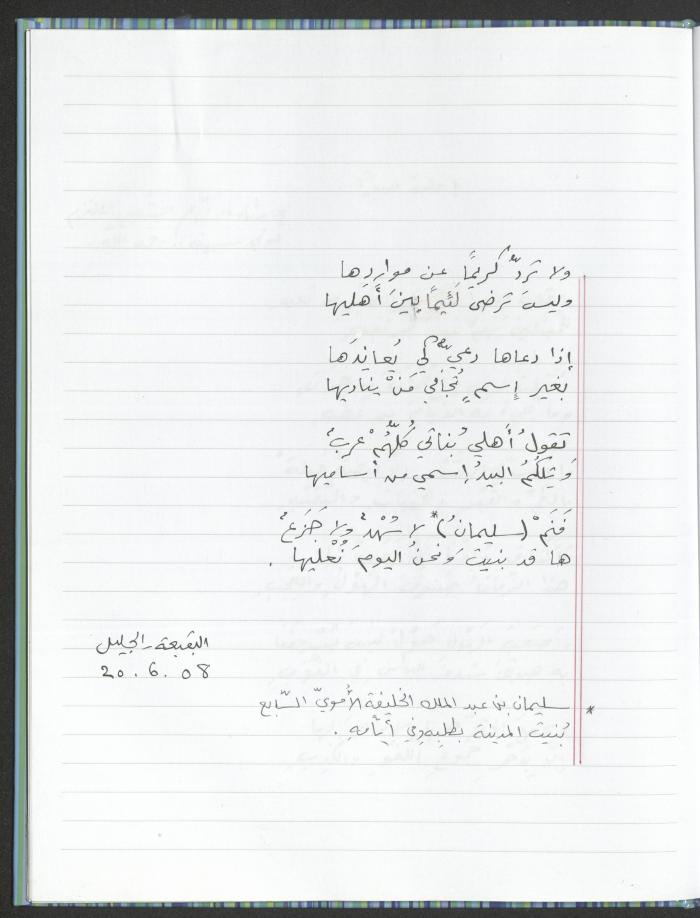 ولا تَردّ كريمًا عن مواردِها
وليسَ ترضى لَئيمًا بينَ أَهليها
إذا دعاها دعيٌّ كي يُعاندَها
بغير إسمٍ تُجافي مَنْ يناديها
تقولُ أَهلي بُناتي كُلّهُمْ عربٌ
وَتِلكُمُ البيدُ إسمي من أساميها
فَنَمْ (سليمانُ)* لا سُهْدٌ ولا جَزَعٌ
ها قد بنيتَ وَنحنُ اليومَ نُعْليها .
البقيعة - الجليل
20 . 6 . 08
* سليمان بن عبد الملك الخليفة الأُمويّ السّابع
بُنيت المدينة بطلبِهِ وفي أيّامهِ .